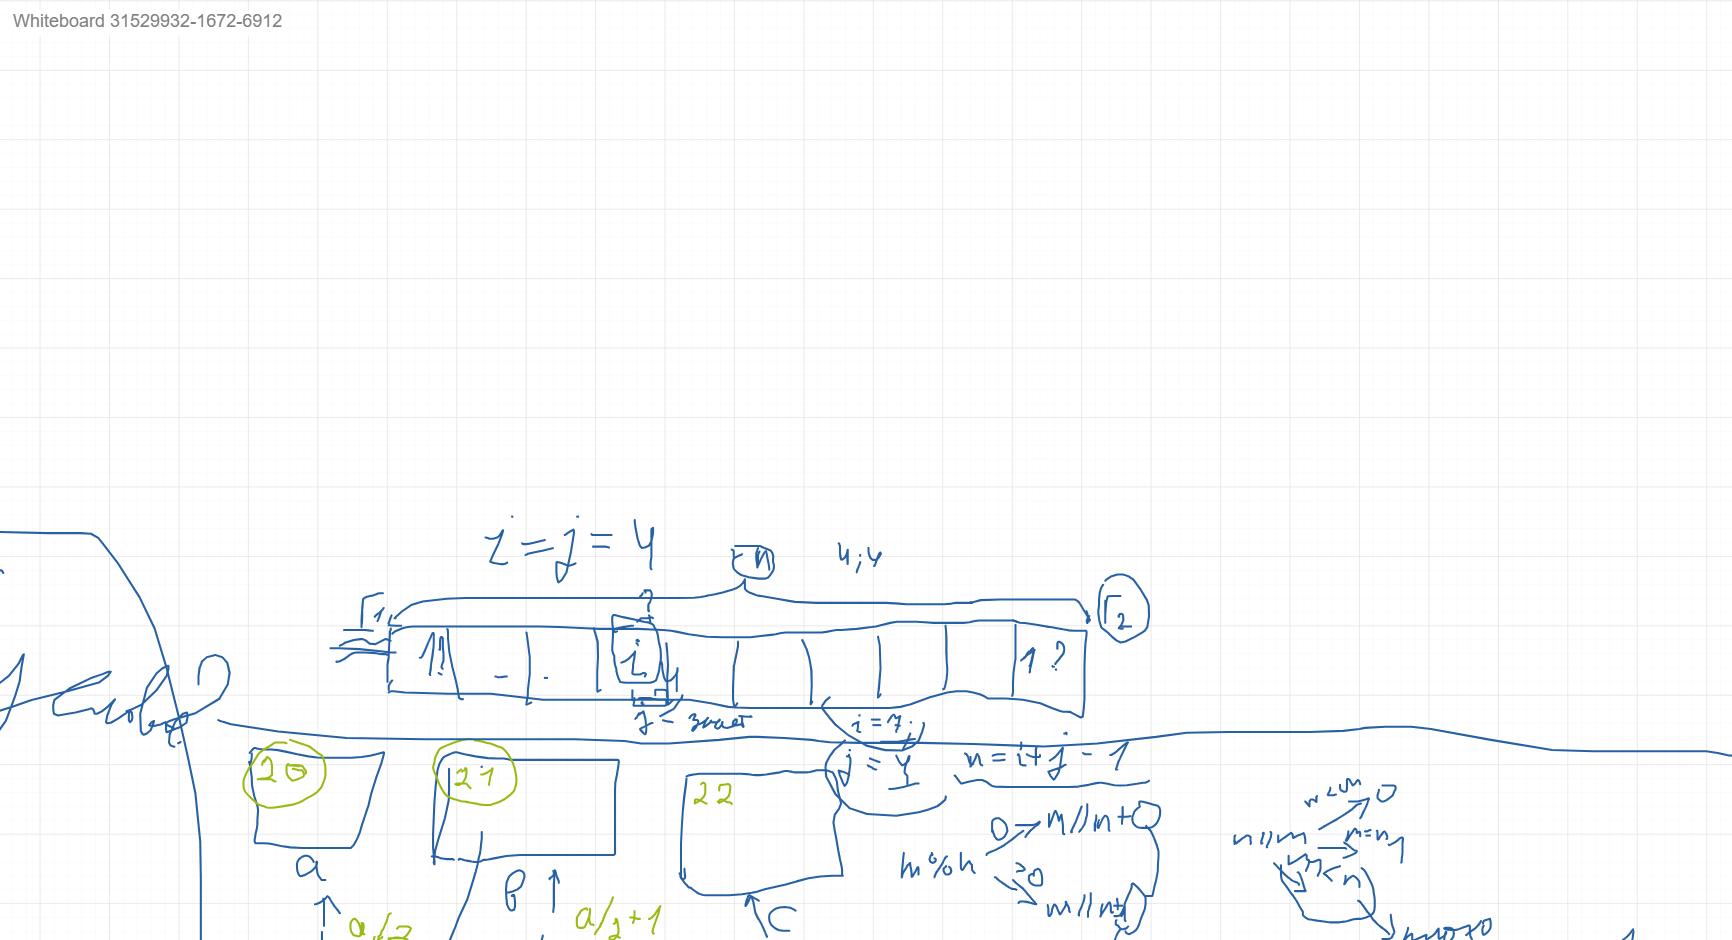 Whiteboard 31529932-1672-6912
i = j = 4
n
4;4
Г1
Г2
1?
i
?
4
1?
j = знает
i = 7;
j = 4
n = i + j - 1
20
21
22
a
b
c
a/2
a/2+1
m%n
0 → m//n+0
>0
m//n+1
n//m
n<m
0
m=n
1
m<n